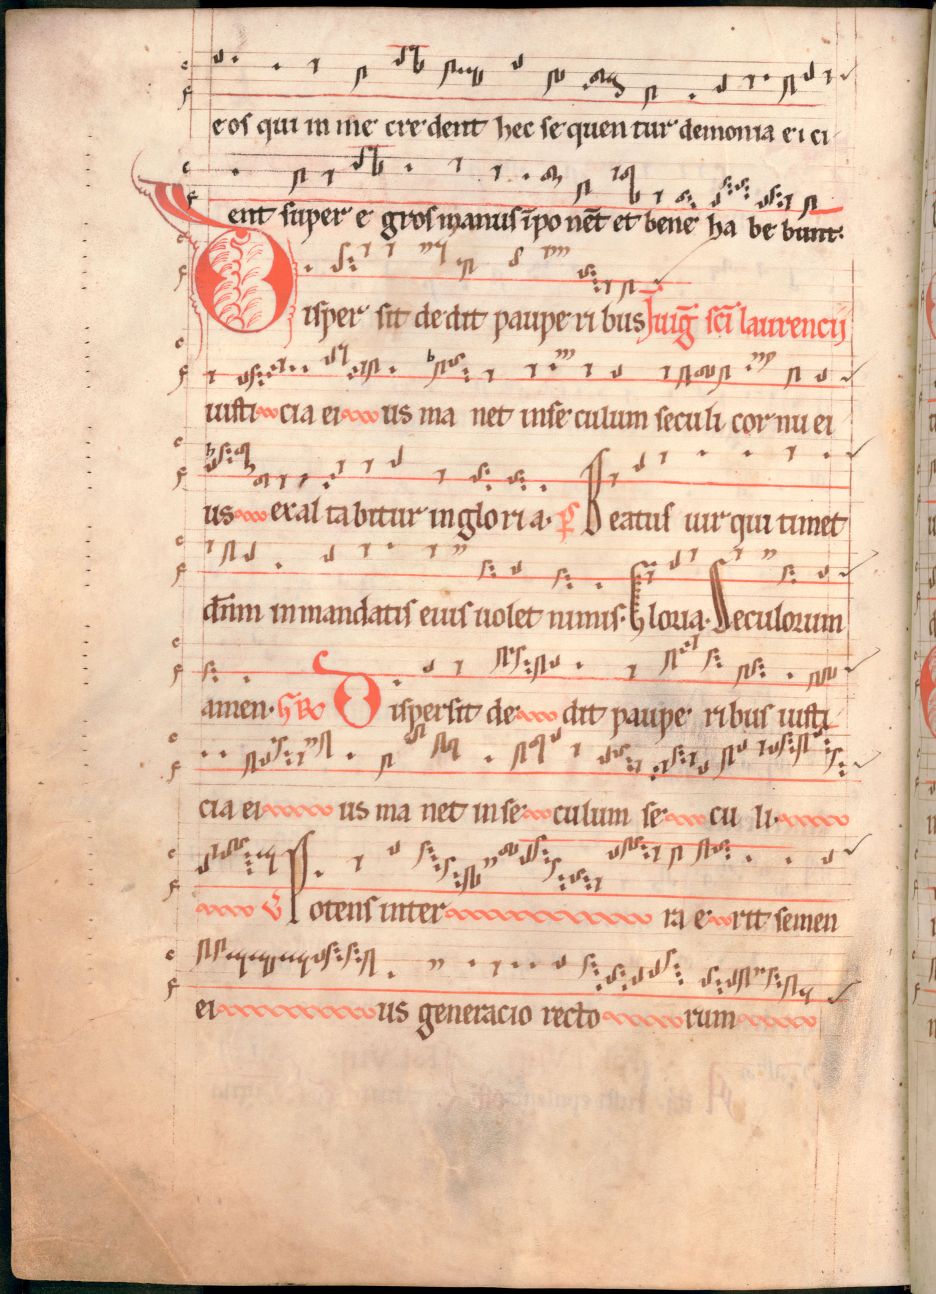 eos qui in me credent hec sequentur demonia eici
ent super egros manus īponēt et bene habebunt.
Dispersit dedit pauperibus In uig̃ sc̄i laurencii
iusticia eius manet in seculum seculi cornu ei
us exaltabitur in gloria. p̄s Beatus uir qui timet
dn̄m in mandatis eius uolet nimis. Gloria. Seculorum
amen. Dispersit dedit pauperibus iusti
cia eius manet in seculum seculi.
V Potens in terra erit semen
eius generacio rectorum